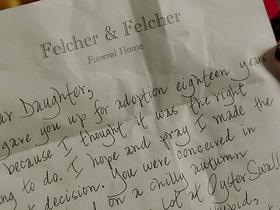 Felcher & Felcher
Funeral Home
Daughter,
gave you up for adoption eighteen years
because I thought it was the right
to do. I hope and pray I made the
decision. You were conceived in
on a chilly autumn
lot at Oyster